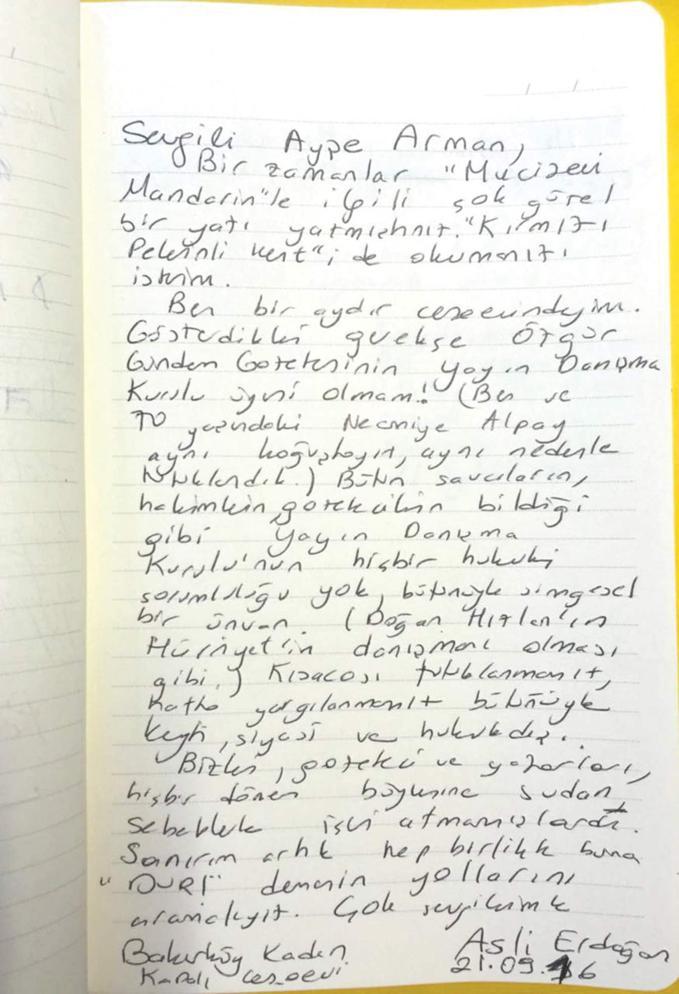 Sevgili Ayşe Arman,
Bir zamanlar "Mucizevi
Mandarin"le ilgili çok güzel
bir yazı yazmıştınız. "Kırmızı
Pelerinli Kent"i de okumanızı
isterim.
Ben bir aydır cezaevindeyim.
Gösterdikleri gerekçe Özgür
Gündem Gazetesinin Yayın Danışma
Kurulu üyesi olmam! (Ben ve
70 yaşındaki Necmiye Alpay
aynı koğuştayız, aynı nedenle
tutuklandık.) Bütün savcıların,
hakimlerin, gazetecilerin bildiği
gibi Yayın Danışma
Kurulu'nun hiçbir hukuki
sorumluluğu yok, bütünüyle simgesel
bir ünvan. (Doğan Hızlan'ın
Hürriyet'in danışmanı olması
gibi.) Kısacası tutuklanmamız,
hatta yargılanmamız bütünüyle
keyfi, siyasi ve
Bizleri, gazeteci ve yazarları,
hiçbir dönem böylesine sudan
sebeplerle içeri atmamışlardı.
Sanırım artık hep birlikte buna
"DUR!" demenin yollarını
aramalıyız. Çok sevgilerimle
Aslı Erdoğan
21.09.16
Bakırköy Kadın
Kapalı Cezaevi